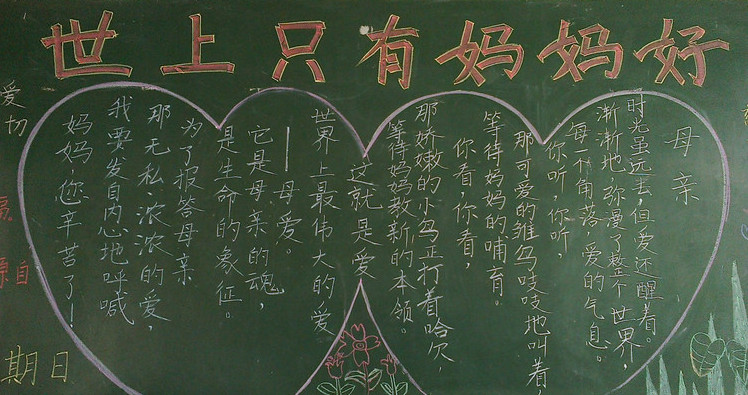 世上只有妈妈好
母亲
时光虽远去，但爱还醒着。
渐渐地弥漫了整个世界，
每一个角落，爱的气息。
你听，你听，
那可爱的雏鸟吱吱地叫着，
等待妈妈的哺育。
你看，你看，
那娇嫩的小鸟正打着哈欠，
等待妈妈教新的本领。
这就是爱
世界上最伟大的爱
——母爱。
它是母亲的魂，
是生命的象征。
为了报答母亲
那无私、浓浓的爱，
我要发自内心地呼喊
妈妈，您辛苦了！
爱
切
自
期日